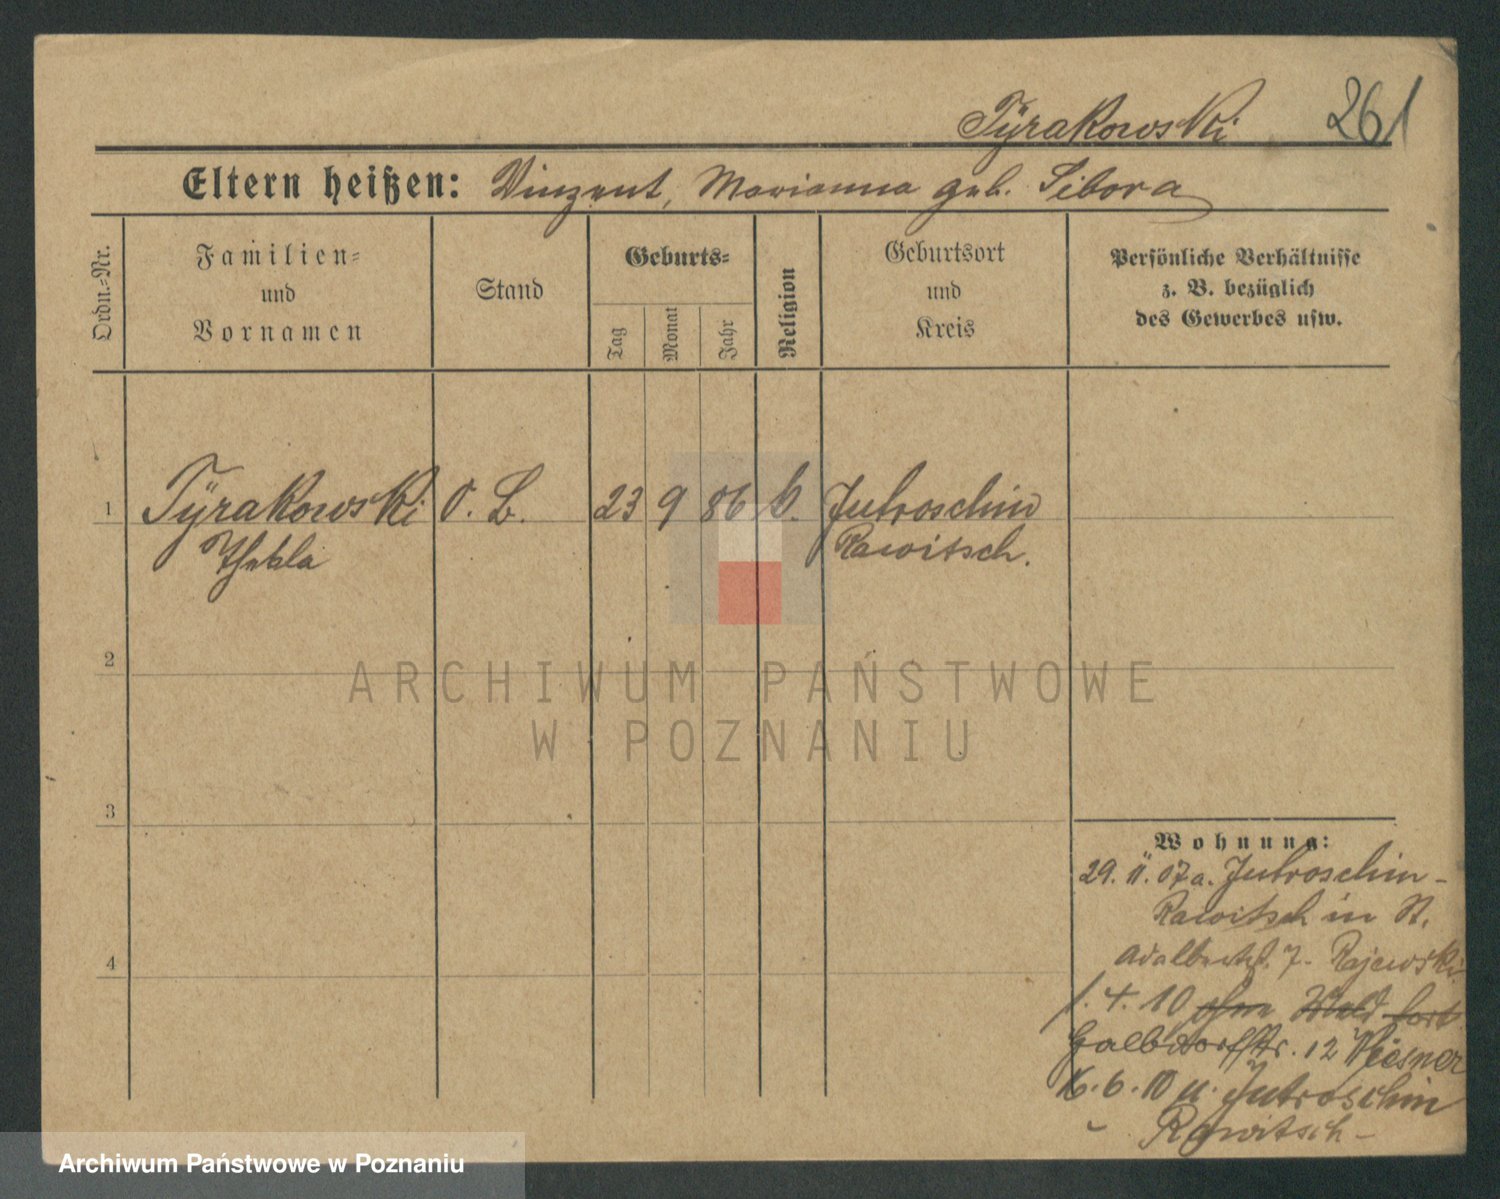 Tÿrakowski 261
Eltern heißen: Vinzent, Marianna geb. Sibora
Ordn.-Nr.
Familien-
und
Vornamen
Stand
Geburts-
Tag
Monat
Jahr
Religion
Geburtsort
und
Kreis
Persönliche Verhältnisse
z. B. bezüglich
des Gewerbes usw.
1 Tÿrakowski O. L. 23 9 86 k. Jutroschin
Thekla Rawitsch.
2
3
4
Wohnung:
29. 11. 07 a. Jutroschin -
Rawitsch in St.
Adalbertstr. 7. Rajewski
1. 4. 10 ohne Meld fort
12 Wiesner
16. 6. 10 n. Jutroschin
Rawitsch -
ARCHIWUM PAŃSTWOWE
W POZNANIU
Archiwum Państwowe w Poznaniu